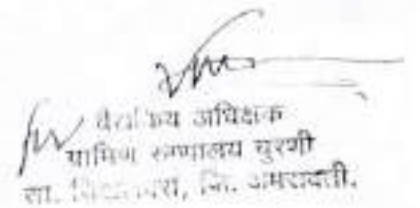 वैद्यकिय अधिक्षक
ग्रामिण रुग्णालय चुरणी
ता. जि. अमरावती.